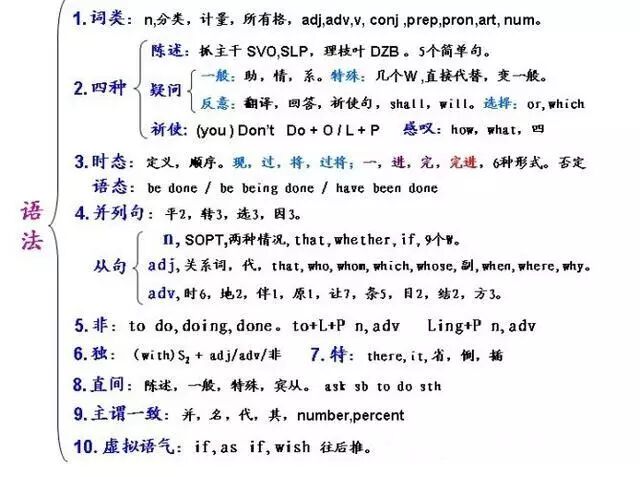 语法
1. 词类: n,分类, 计量, 所有格, adj,adv,v, conj ,prep,pron,art, num。
2. 四种
陈述: 抓主干 SVO,SLP, 理枝叶 DZB 。5个简单句。
疑问
一般: 助, 情, 系。特殊: 几个W ,直接代替, 变一般。
反意: 翻译, 回答, 祈使句, shall, will。选择: or,which
祈使: (you ) Don't Do + O / L + P 感叹: how, what, 四
3. 时态: 定义, 顺序。现, 过, 将, 过将; 一, 进, 完, 完进, 6种形式。否定
语态: be done / be being done / have been done
4. 并列句: 平2, 转3, 选3, 因3。
从句
n, SOPT,两种情况, that,whether, if, 9个W。
adj,关系词, 代, that,who,whom,which,whose,副,when,where,why。
adv,时6, 地2, 伴1, 原1, 让7, 条5, 目2, 结2, 方3。
5. 非: to do,doing,done。to+L+P n,adv Ling+P n,adv
6. 独: (with)S₂ + adj/adv/非 7. 特: there,it,省, 倒, 插
8. 直间: 陈述, 一般, 特殊, 宾从。ask sb to do sth
9. 主谓一致: 并, 名, 代, 其, number,percent
10. 虚拟语气: if,as if,wish 往后推。